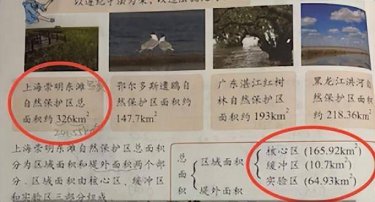 上海崇明东滩
自然保护区总
面积约 326km²
鄂尔多斯遗鸥自
然保护区面积约
147.7km²
广东湛江红树
林自然保护区
面积约 193km²
黑龙江洪河自
然保护区面积
约 218.36km²
上海崇明东滩自然保护区总面积
分为区域面积和堤外面积两个部
分，区域面积由核心区、缓冲区
和实验区三部分组成
总面积
区域面积
核心区 (165.92km²)
缓冲区 (10.7km²)
实验区 (64.93km²)
堤外面积